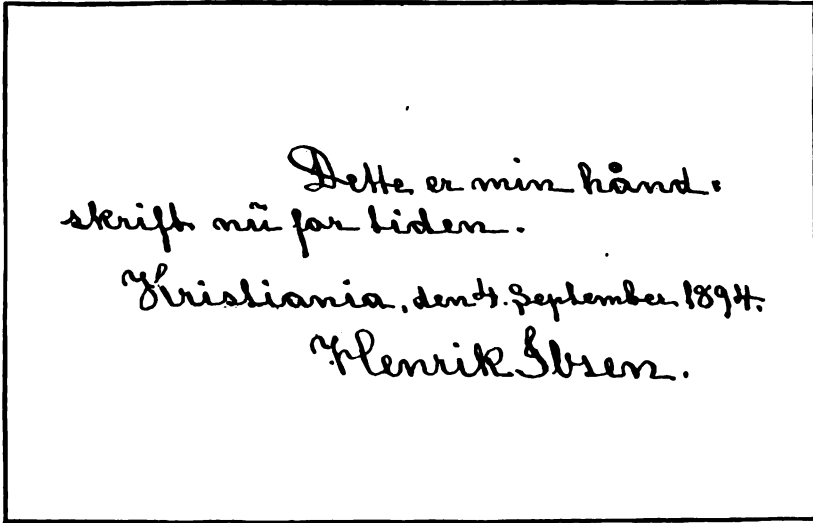 Dette er min hånd-
skrift nu for tiden.
Kristiania, den 4. September 1894.
Henrik Ibsen.